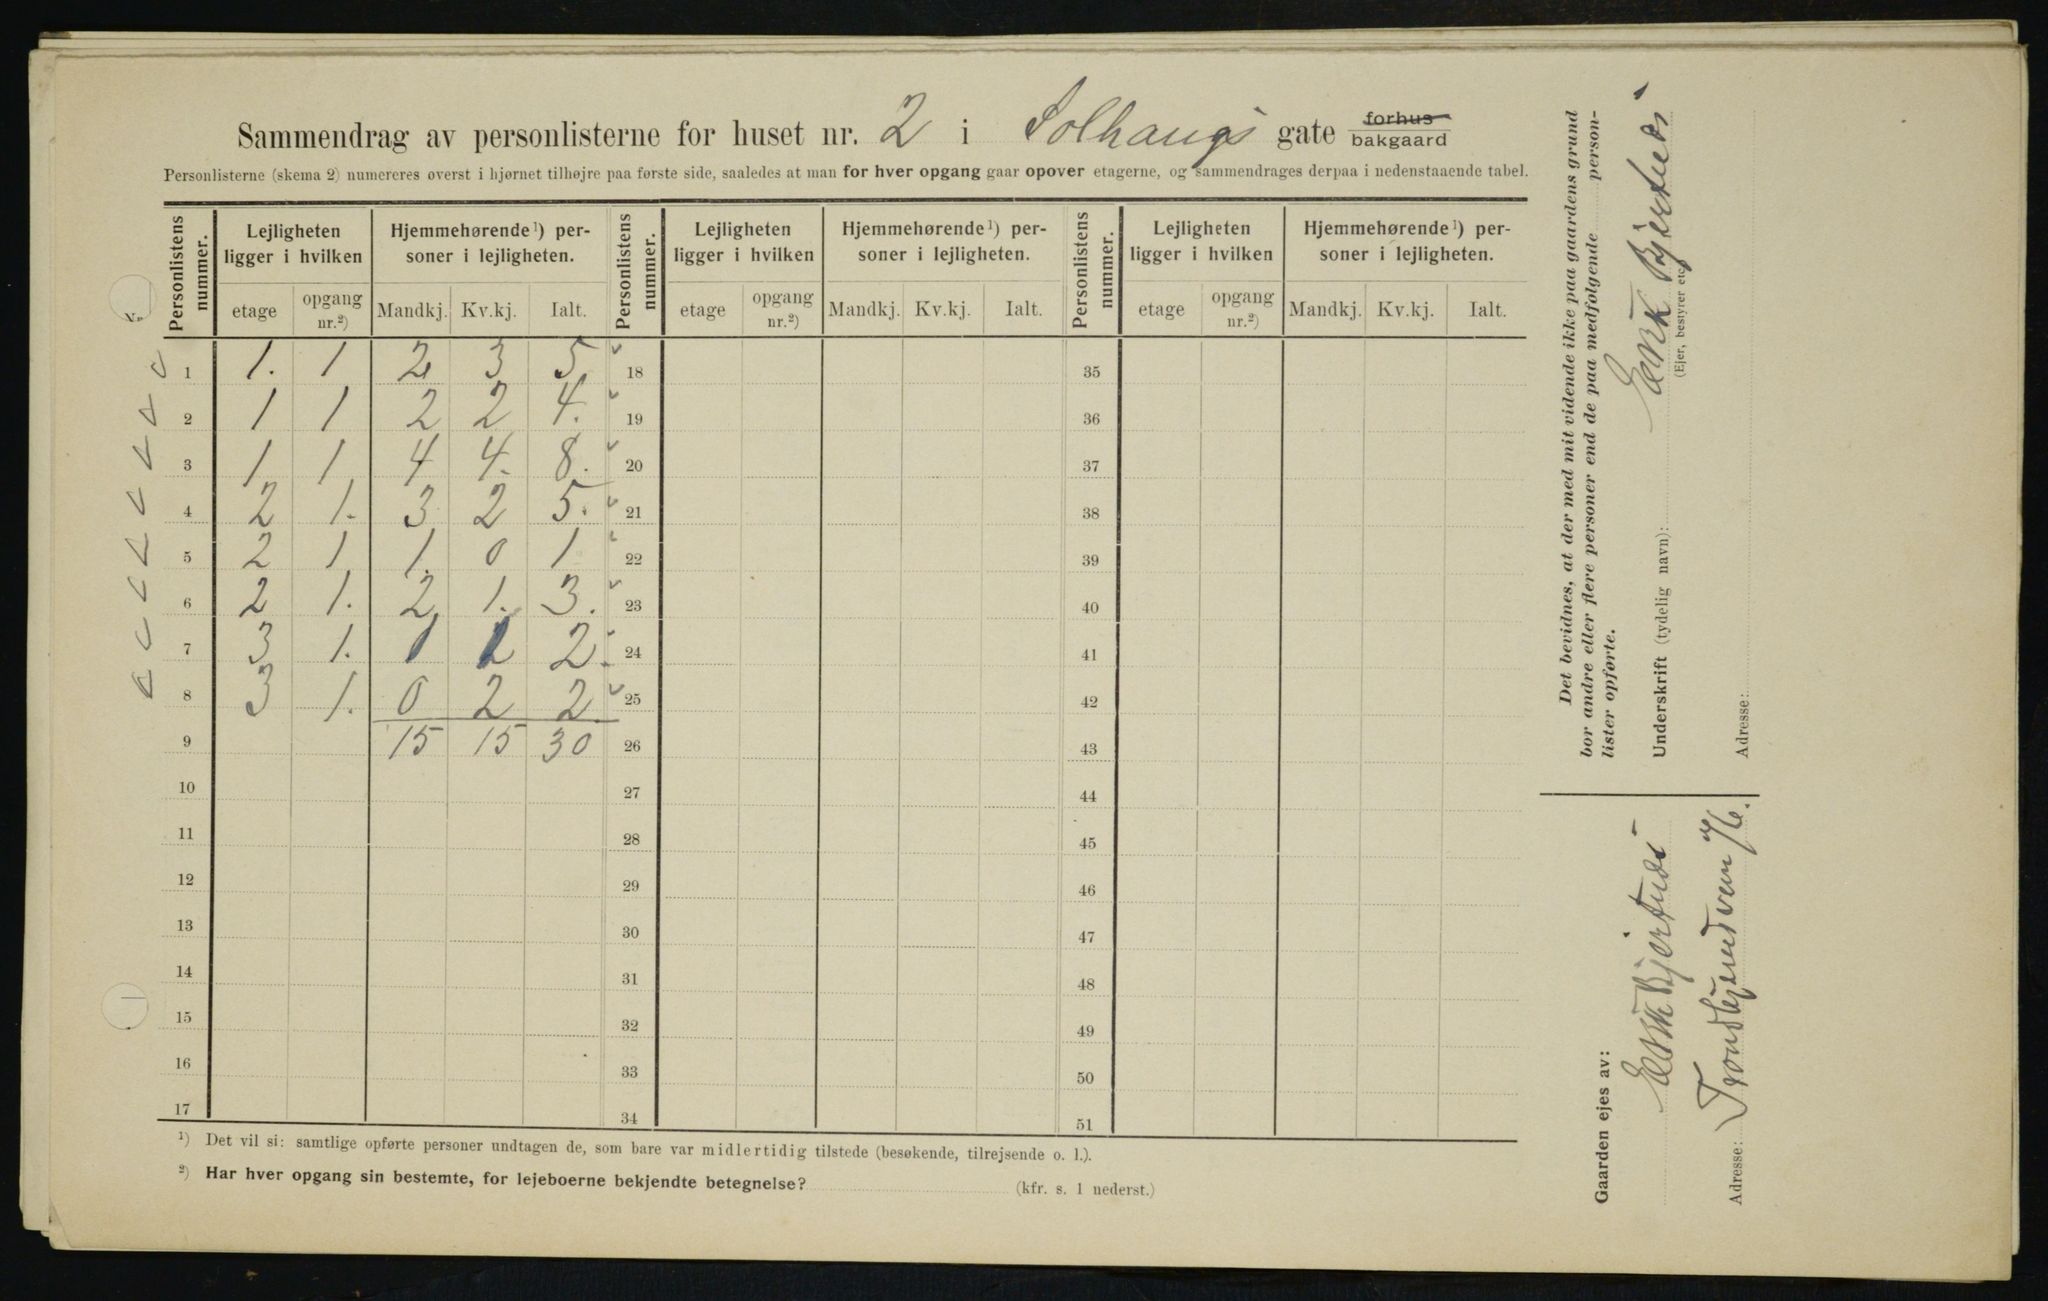 Sammendrag av personlisterne for huset nr. 2 i Solhaugs gate forhus bakgaard
Personlisterne (skema 2) numereres øverst i hjørnet tilhøjre paa første side, saaledes at man for hver opgang gaar opover etagerne, og sammendrages derpaa i nedenstaaende tabel.
Personlistens nummer. Lejligheten ligger i hvilken Hjemmehørende ¹) personer i lejligheten. Personlistens nummer. Lejligheten ligger i hvilken Hjemmehørende ¹) personer i lejligheten. Personlistens nummer. Lejligheten ligger i hvilken Hjemmehørende ¹) personer i lejligheten.
etage opgang nr.²) Mandkj. Kv.kj. Ialt. etage opgang nr.²) Mandkj. Kv.kj. Ialt. etage opgang nr.²) Mandkj. Kv.kj. Ialt.
1 1. 1 2 3 5. 18 35
2 1 1 2 2 4. 19 36
3 1 1 4 4. 8. 20 37
4 2 1. 3 2 5. 21 38
5 2 1 1 0 1 22 39
6 2 1. 2 1. 3. 23 40
7 3 1. 1 1 2. 24 41
8 3 1. 0 2 2. 25 42
9 15 15 30 26 43
10 27 44
11 28 45
12 29 46
13 30 47
14 31 48
15 32 49
16 33 50
17 34 51
¹) Det vil si: samtlige opførte personer undtagen de, som bare var midlertidig tilstede (besøkende, tilrejsende o. l.).
²) Har hver opgang sin bestemte, for lejeboerne bekjendte betegnelse? (kfr. s. 1 nederst.)
Det bevidnes, at der med mit vidende ikke paa gaardens grund
bor andre eller flere personer end de paa medfølgende person-
lister opførte.
Underskrift (tydelig navn):
(Ejer, bestyrer etc.)
Adresse:
Gaarden ejes av:
Adresse: